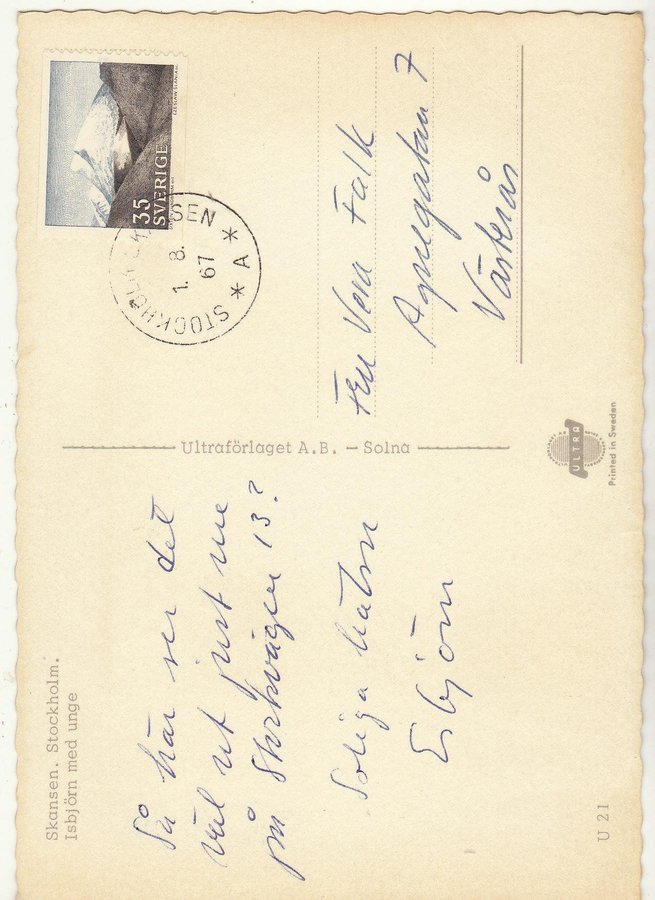 Skansen. Stockholm.
Isbjörn med unge
Så här ser det
väl ut just nu
på Storkvägen 13?
Soliga hälsn
Esbjörn
U 21
Ultraförlaget A.B. – Solna
35
SVERIGE
STOCKHOLM SKANSEN
* A *
1. 8.
67
Fru Vera Falk
Agnegatan 7
Västerås
ULTRA
Printed in Sweden